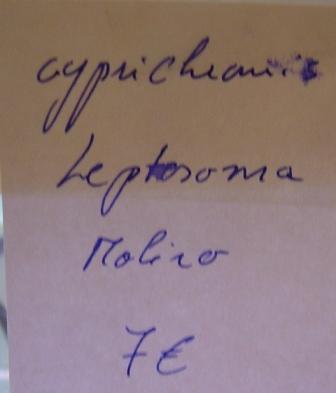 cyprichromis
Leptosoma
Moliro
7€